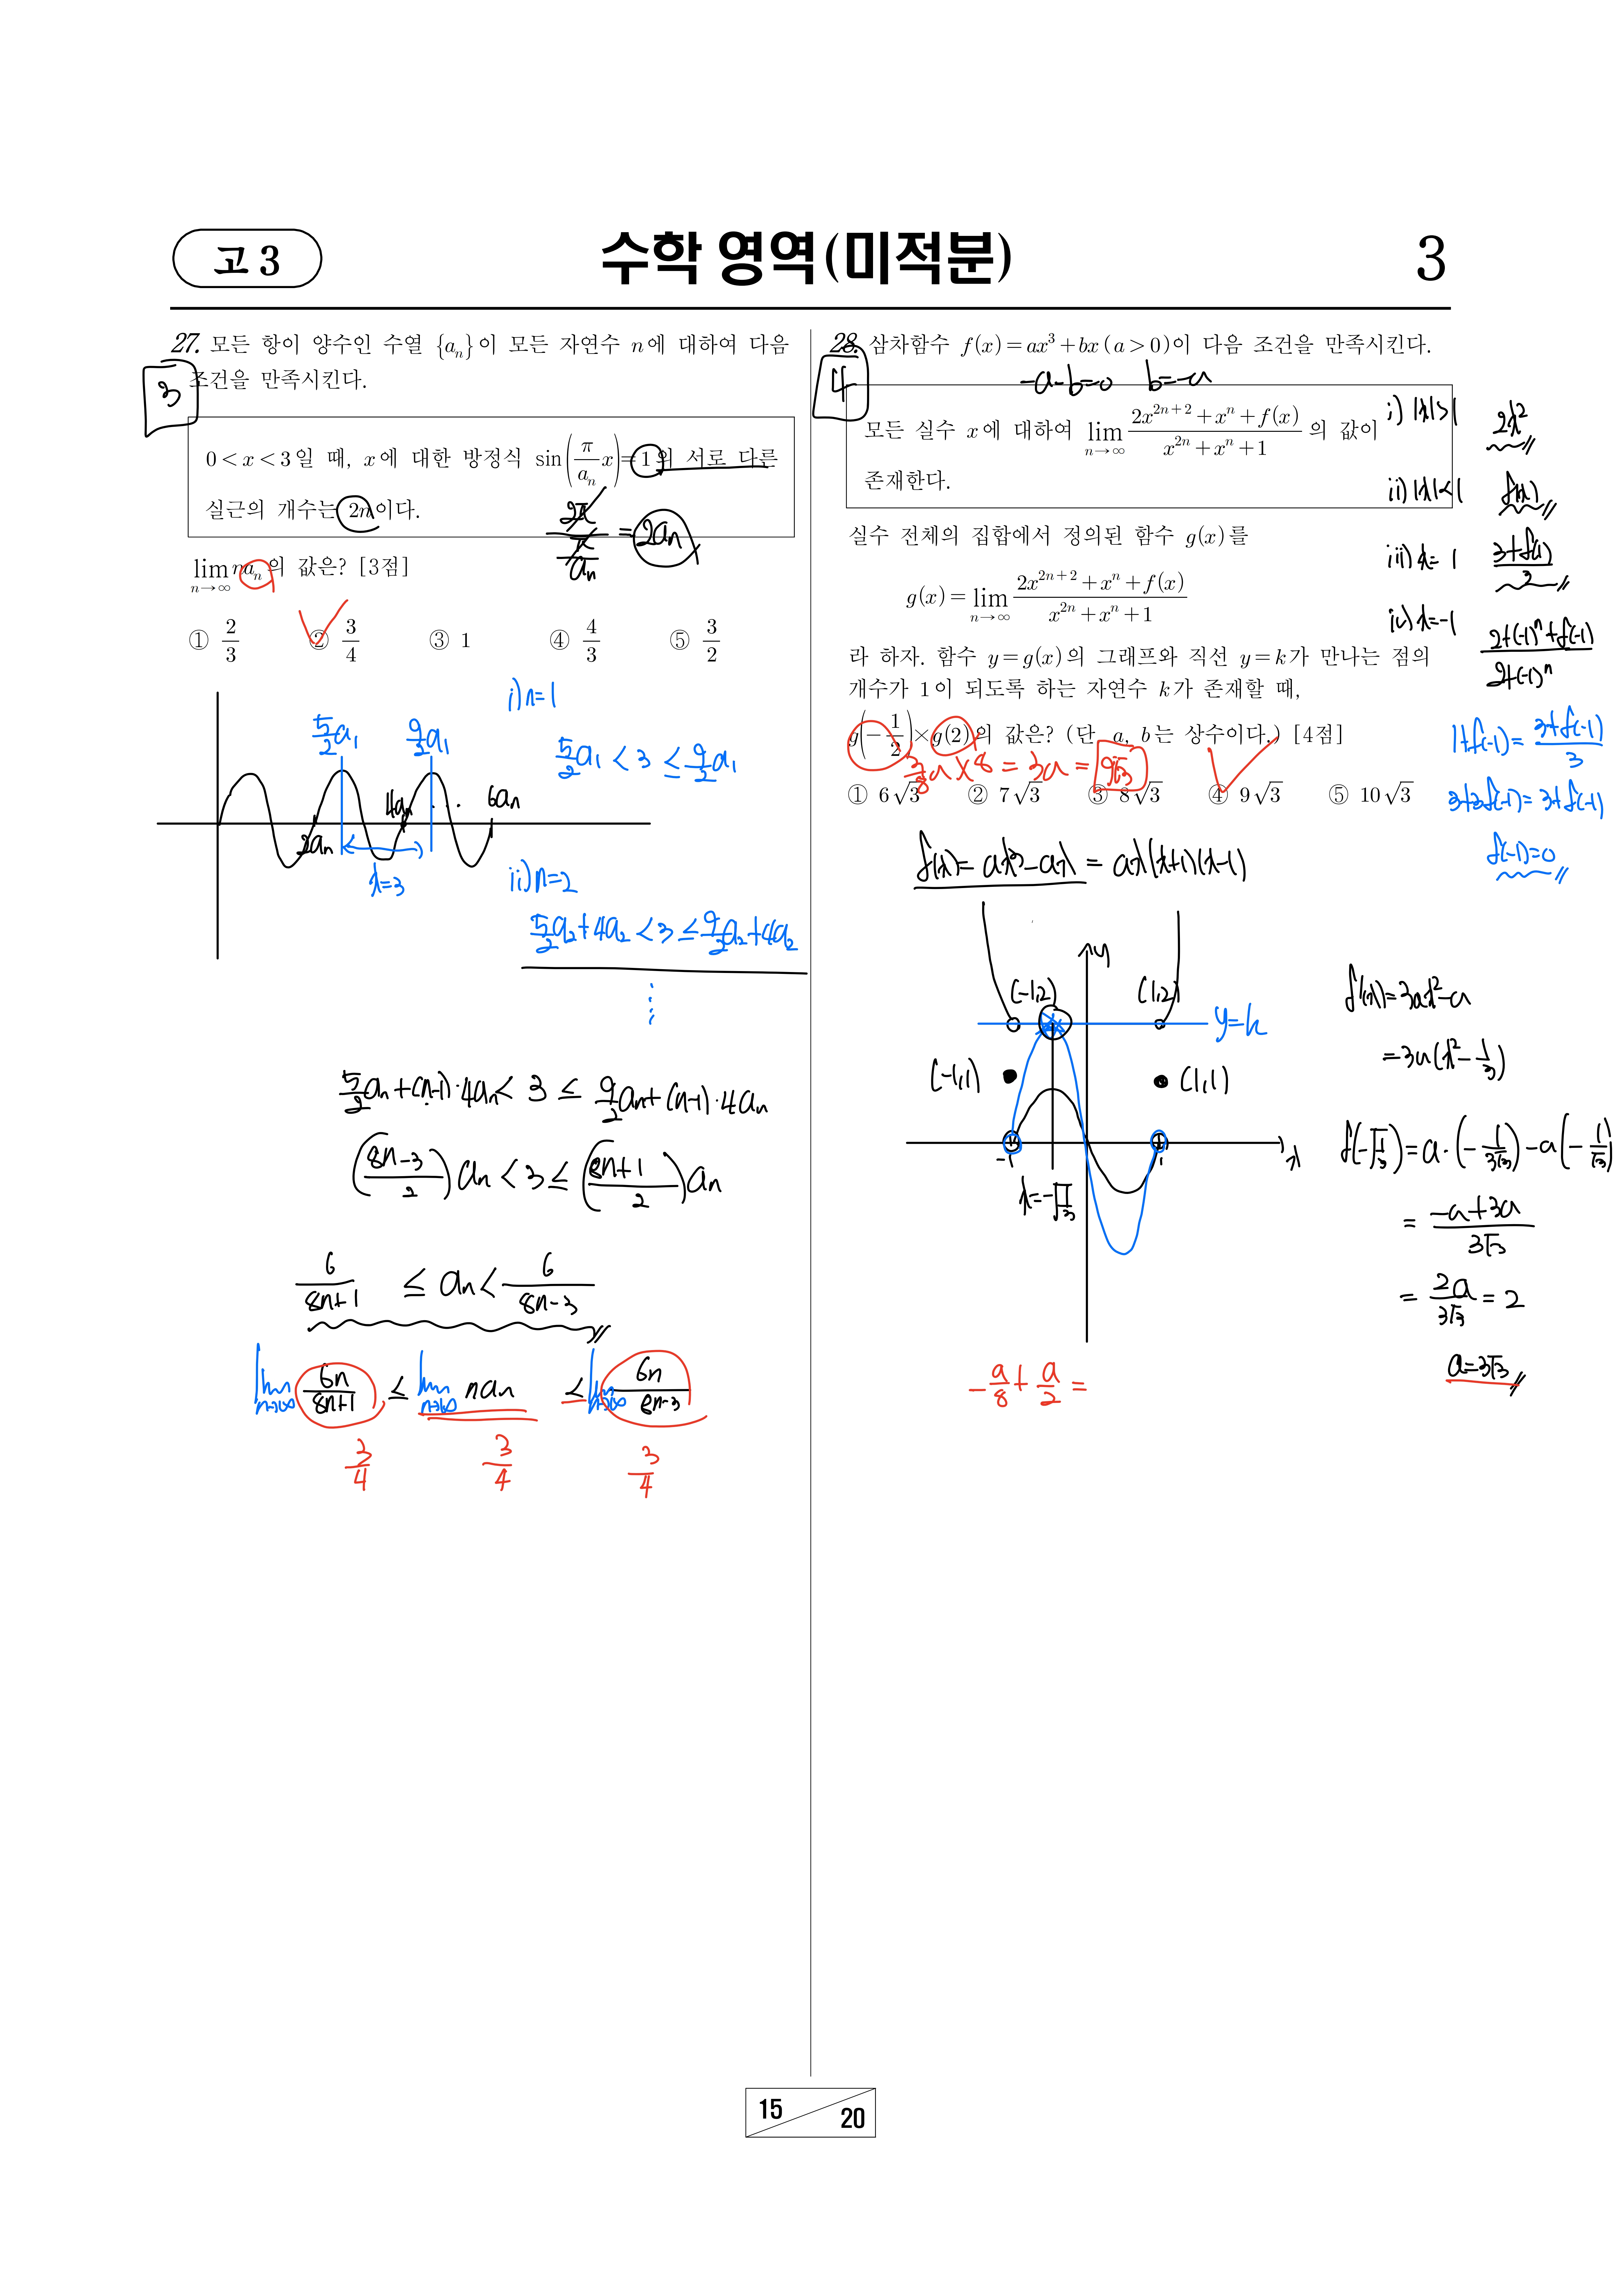 고 3
수학 영역(미적분)
3
27. 모든 항이 양수인 수열 {aₙ}이 모든 자연수 n에 대하여 다음
조건을 만족시킨다.
3
0 < x < 3일 때, x에 대한 방정식 sin(π/aₙ x) = 1의 서로 다른
실근의 개수는 2n이다.
2π/(π/aₙ) = 2aₙ
lim_{n→∞} naₙ의 값은? [3점]
① 2/3 ② 3/4 ③ 1 ④ 4/3 ⑤ 3/2
i) n=1
5/2 a₁ 9/2 a₁
5/2 a₁ < 3 ≤ 9/2 a₁
2aₙ 4aₙ ... 6aₙ
x=3
ii) n=2
5/2 a₂+4a₂ < 3 ≤ 9/2 a₂+4a₂
⋮
5/2 aₙ+(n-1)·4aₙ < 3 ≤ 9/2 aₙ+(n-1)·4aₙ
((8n-3)/2) aₙ < 3 ≤ ((8n+1)/2) aₙ
6/(8n+1) ≤ aₙ < 6/(8n-3)
lim_{n→∞} 6n/(8n+1) ≤ lim_{n→∞} naₙ ≤ lim_{n→∞} 6n/(8n-3)
3/4 3/4 3/4
28. 삼차함수 f(x) = ax³ + bx (a > 0)이 다음 조건을 만족시킨다.
4
-a-b=0 b=-a
모든 실수 x에 대하여 lim_{n→∞} (2x^{2n+2} + xⁿ + f(x))/(x^{2n} + xⁿ + 1) 의 값이
존재한다.
i) |x|>1 2x²
ii) |x|<1 f(x)
iii) x=1 (3+f(1))/3
iv) x=-1 (2+(-1)ⁿ+f(-1))/(2+(-1)ⁿ)
실수 전체의 집합에서 정의된 함수 g(x)를
g(x) = lim_{n→∞} (2x^{2n+2} + xⁿ + f(x))/(x^{2n} + xⁿ + 1)
라 하자. 함수 y = g(x)의 그래프와 직선 y = k가 만나는 점의
개수가 1이 되도록 하는 자연수 k가 존재할 때,
g(-1/2) × g(2)의 값은? (단, a, b는 상수이다.) [4점]
3/8 a × 8 = 3a = 9√3
① 6√3 ② 7√3 ③ 8√3 ④ 9√3 ⑤ 10√3
1+f(-1) = (3+f(-1))/3
3+3f(-1) = 3+f(-1)
f(-1)=0
f(x)=ax³-ax = ax(x+1)(x-1)
y
(-1,2) (1,2)
y=k
(-1,1) (1,1)
-1 1 x
x=-√(1/3)
f'(x)=3ax²-a
=3a(x²-1/3)
f(-√(1/3))=a·(-1/(3√3))-a(-1/√3)
= (-a+3a)/(3√3)
= 2a/(3√3) = 2
a=3√3
-a/8 + a/2 =
15
20